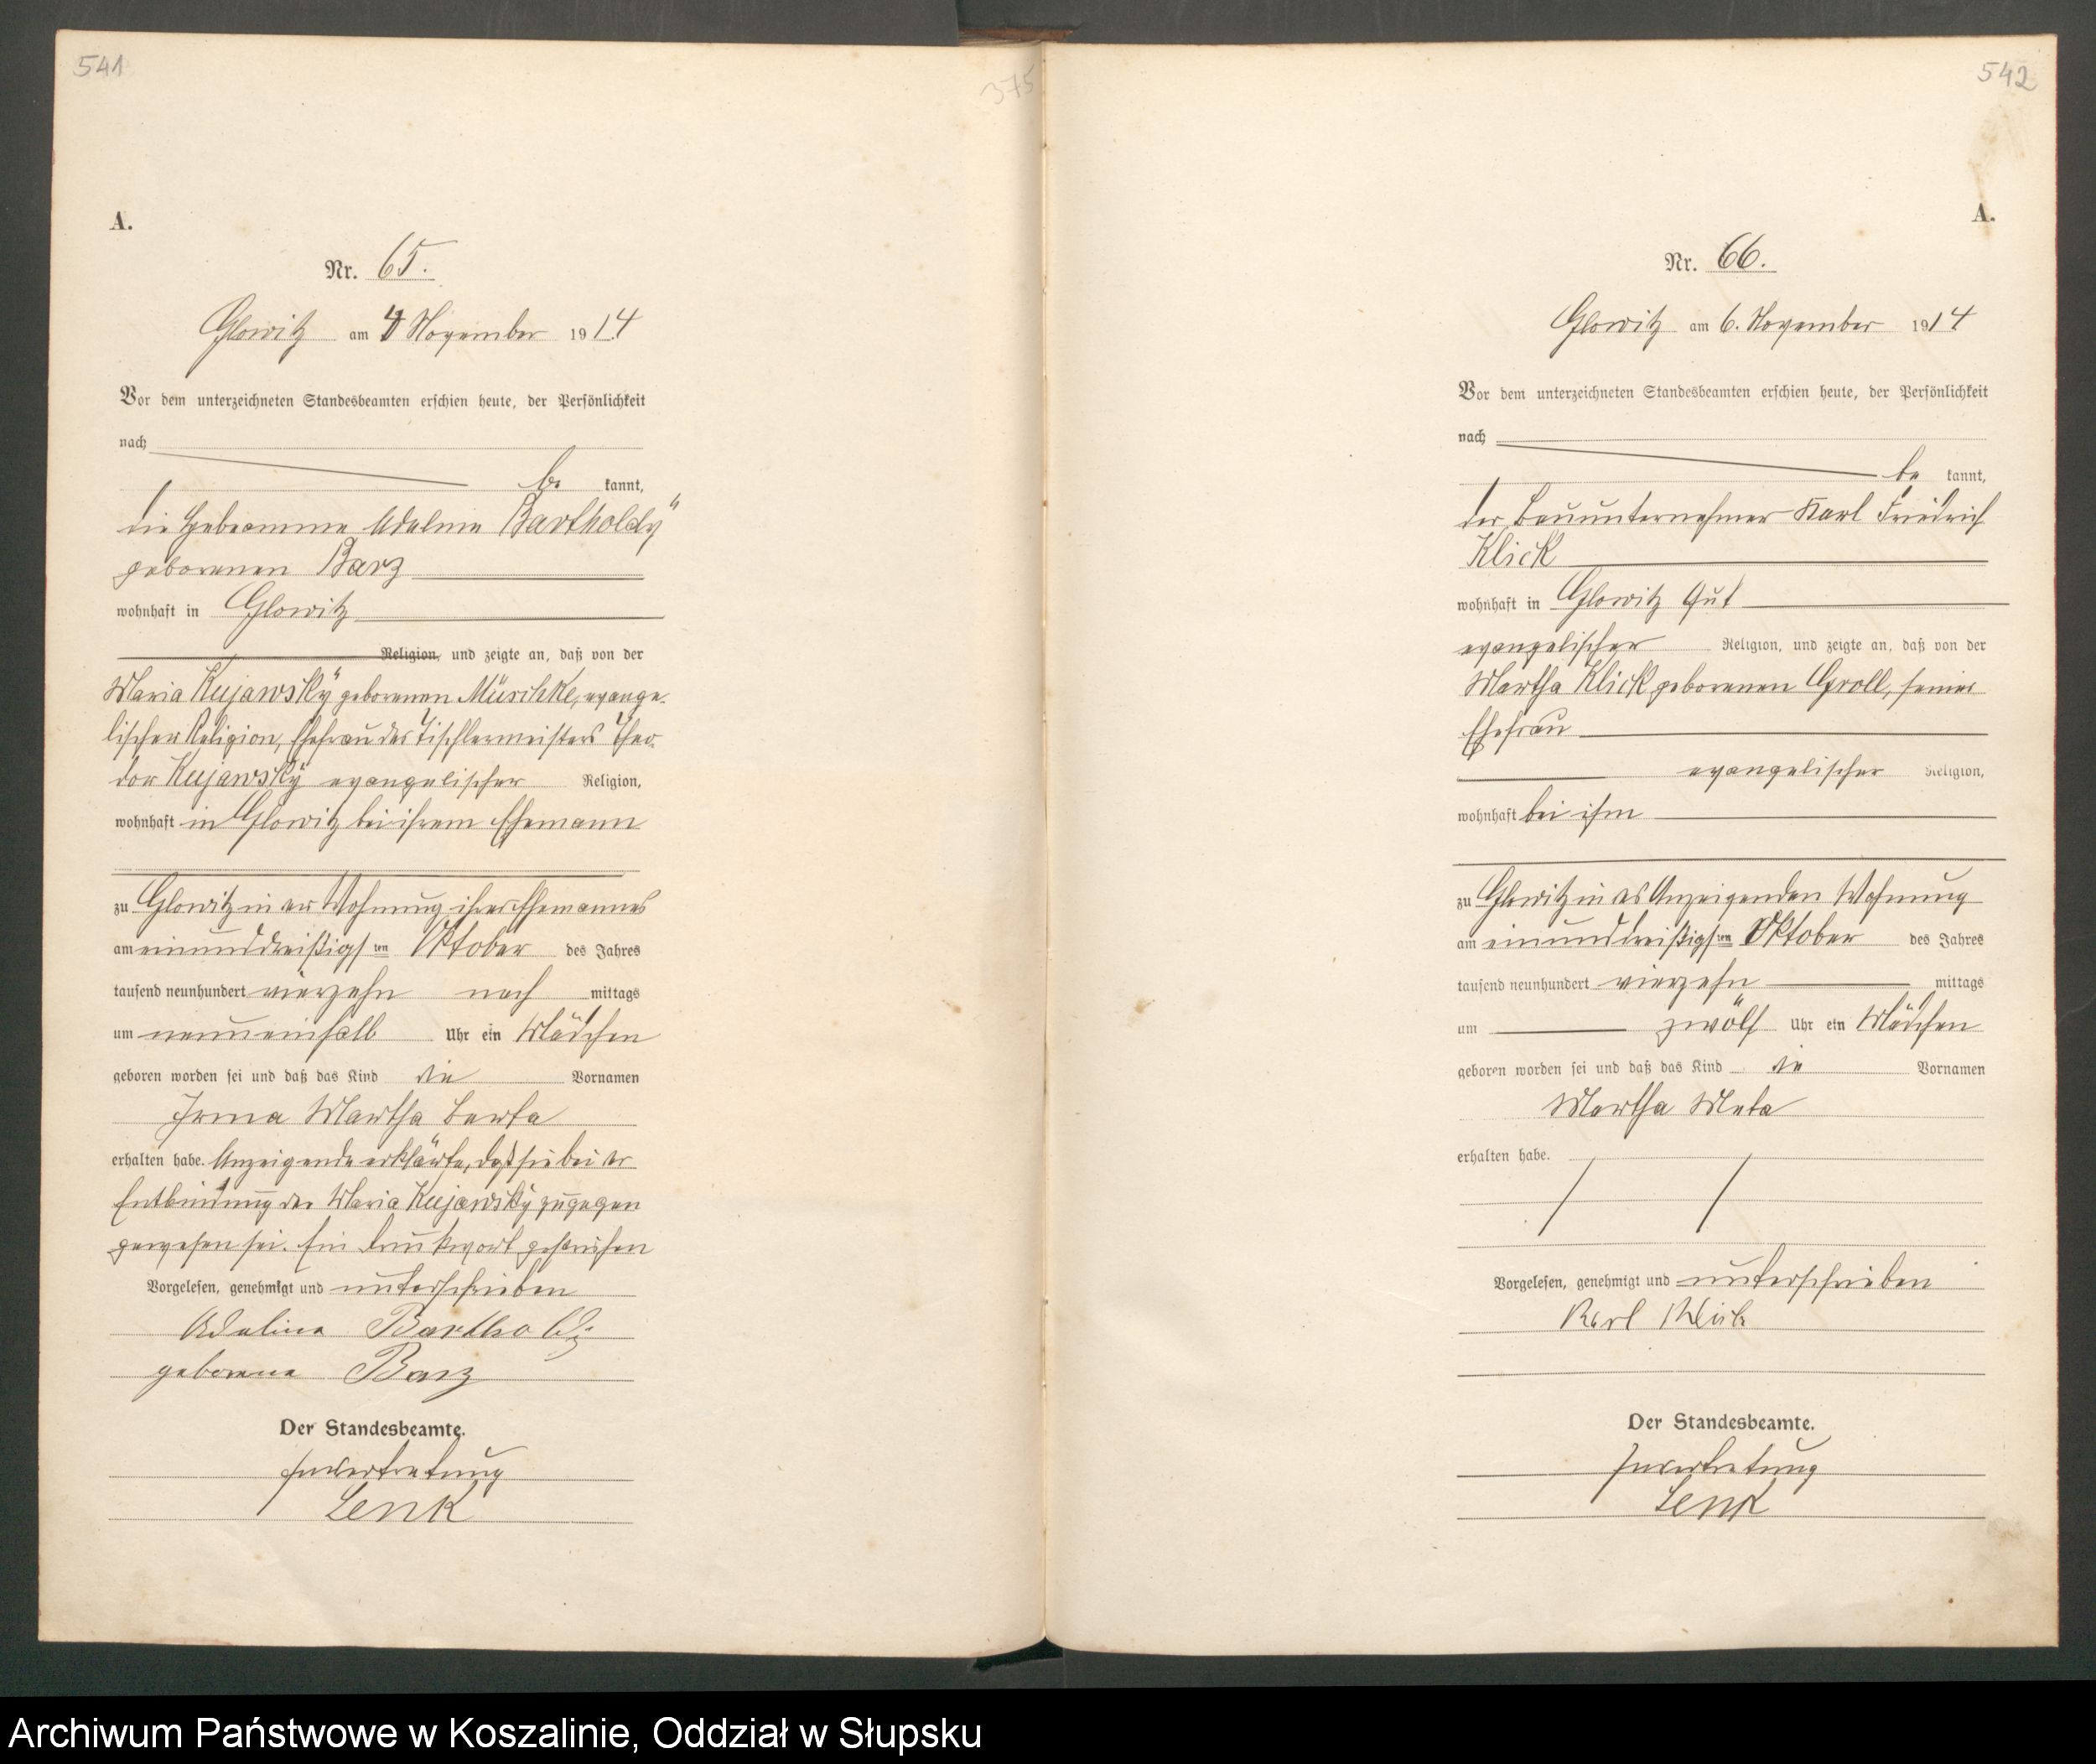 541
375
A.
Nr. 65.
Glowitz am 4 November 1914
Vor dem unterzeichneten Standesbeamten erschien heute, der Persönlichkeit
nach
be kannt,
die Hebeamme Adeline Bartholdy
geborenen Barz
wohnhaft in Glowitz
Religion, und zeigte an, daß von der
Maria Kujawsky geborenen Müschke, evange-
lischer Religion, Ehefrau des Tischlermeisters Theo-
dor Kujawsky evangelischer Religion,
wohnhaft in Glowitz bei ihrem Ehemann
zu Glowitz in der Wohnung ihres Ehemannes
am einunddreißigsten Oktober des Jahres
tausend neunhundert vierzehn nach mittags
um neuneinhalb Uhr ein Mädchen
geboren worden sei und daß das Kind die Vornamen
Irma Martha Berta
erhalten habe. Anzeigende erklärte, daß sie bei der
Entbindung der Maria Kujawsky zugegen
gewesen sei. Ein Druckwort gestrichen
Vorgelesen, genehmigt und unterschrieben
Adeline Bartholdy
geborene Barz
Der Standesbeamte.
In Vertretung
Lenk
542
A.
Nr. 66.
Glowitz am 6. November 1914
Vor dem unterzeichneten Standesbeamten erschien heute, der Persönlichkeit
nach
be kannt,
der Bauunternehmer Karl Friedrich
Klick
wohnhaft in Glowitz Gut
evangelischer Religion, und zeigte an, daß von der
Martha Klick geborenen Groll, seiner
Ehefrau
evangelischer Religion,
wohnhaft bei ihm
zu Glowitz in des Anzeigenden Wohnung
am einunddreißigsten Oktober des Jahres
tausend neunhundert vierzehn mittags
um zwölf Uhr ein Mädchen
geboren worden sei und daß das Kind die Vornamen
Martha Meta
erhalten habe.
Vorgelesen, genehmigt und unterschrieben
Karl Klick
Der Standesbeamte.
In Vertretung
Lenk
Archiwum Państwowe w Koszalinie, Oddział w Słupsku